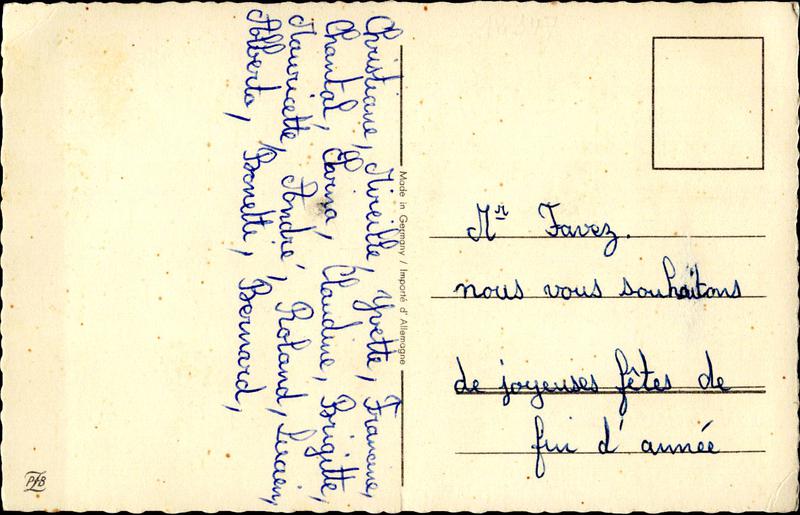 Christiane, Mireille, Yvette, Francine,
Chantal, Carina, Claudine, Brigitte,
Mauricette, André, Roland, Lucien,
Alberto, Bonette, Bernard,
Made in Germany / Importé d'Allemagne
Mr Favez.
nous vous souhaitons
de joyeuses fêtes de
fin d'année
PFB